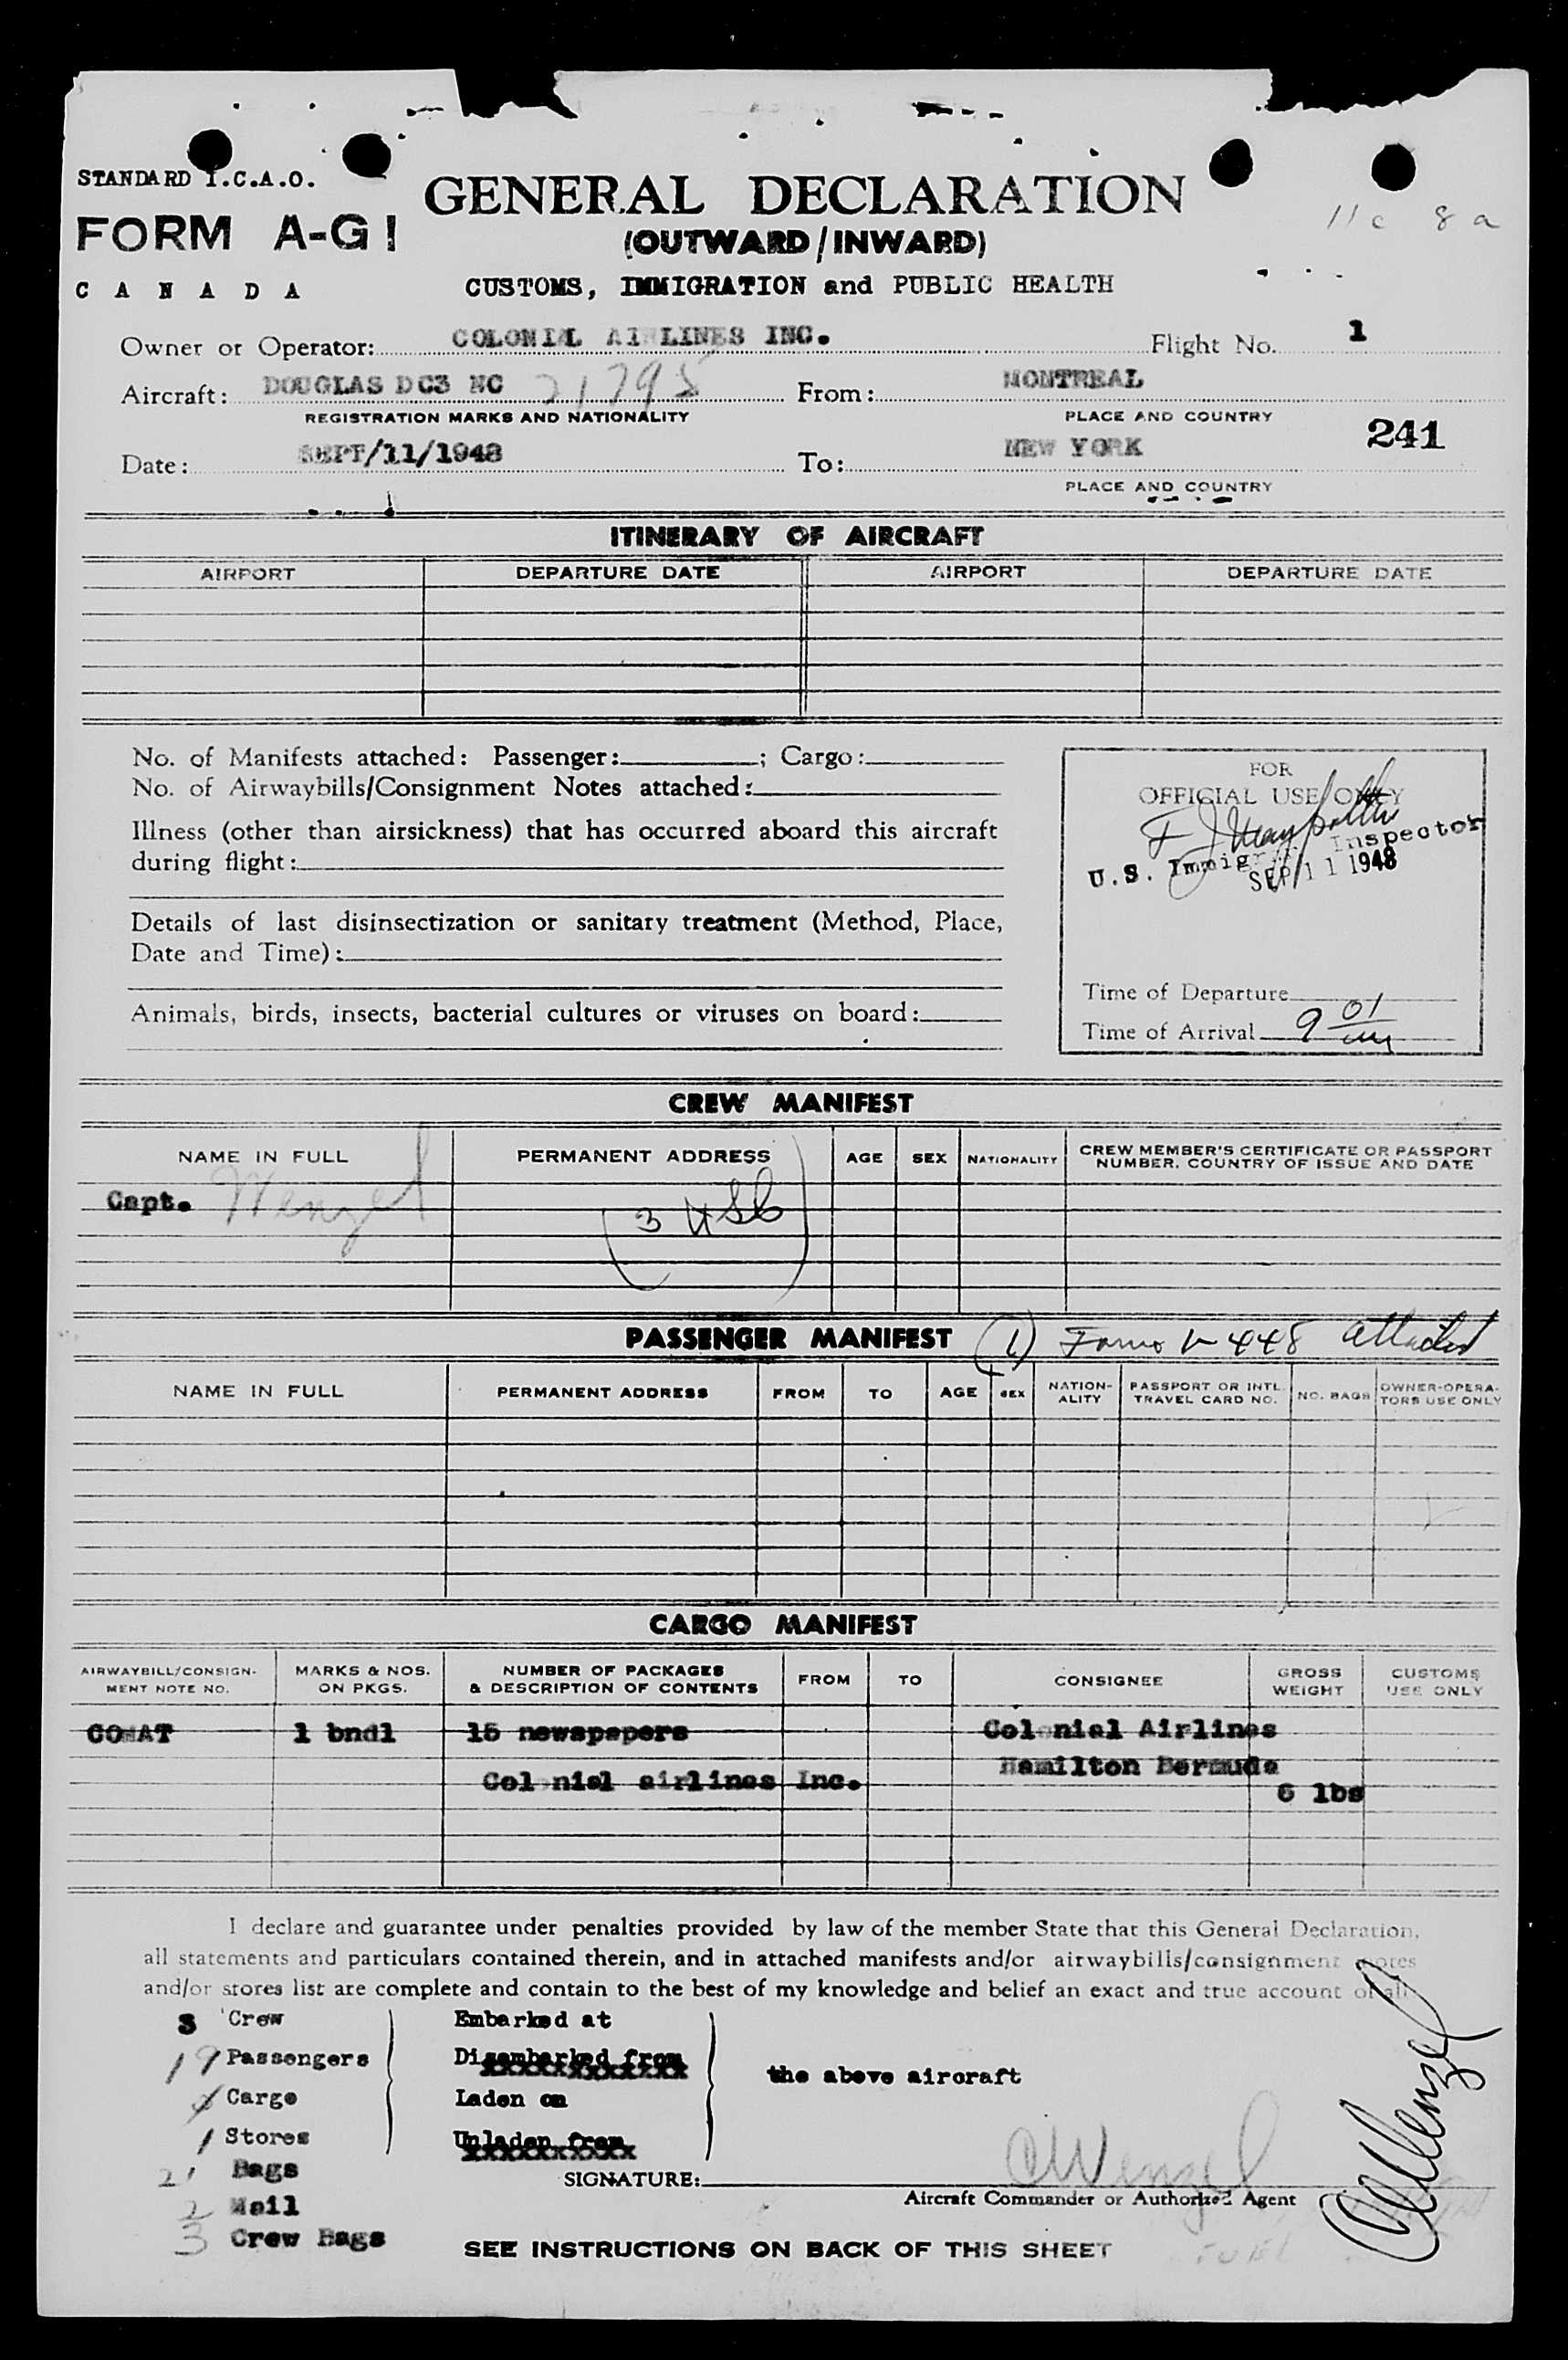 STANDARD I.C.A.O.
FORM A-G1
CANADA
GENERAL DECLARATION
(OUTWARD/INWARD)
CUSTOMS, IMMIGRATION and PUBLIC HEALTH
11c 8a
Owner or Operator: COLONIAL AIRLINES INC. Flight No. 1
Aircraft: DOUGLAS DC3 NC 21795 From: MONTREAL
REGISTRATION MARKS AND NATIONALITY PLACE AND COUNTRY
241
Date: SEPT/11/1948 To: NEW YORK
PLACE AND COUNTRY
ITINERARY OF AIRCRAFT
AIRPORT DEPARTURE DATE AIRPORT DEPARTURE DATE
No. of Manifests attached: Passenger: ; Cargo:
No. of Airwaybills/Consignment Notes attached:
Illness (other than airsickness) that has occurred aboard this aircraft
during flight:
Details of last disinsectization or sanitary treatment (Method, Place,
Date and Time):
Animals, birds, insects, bacterial cultures or viruses on board:
FOR
OFFICIAL USE ONLY
U.S. Immigrant Inspector
SEP 11 1948
Time of Departure
Time of Arrival 9 01
CREW MANIFEST
NAME IN FULL PERMANENT ADDRESS AGE SEX NATIONALITY CREW MEMBER'S CERTIFICATE OR PASSPORT
NUMBER, COUNTRY OF ISSUE AND DATE
Capt. Wenzel
(3 USC)
PASSENGER MANIFEST (1) Form I-448 attached
NAME IN FULL PERMANENT ADDRESS FROM TO AGE SEX NATION-
ALITY PASSPORT OR INTL.
TRAVEL CARD NO. NO. BAGS OWNER-OPERA-
TORS USE ONLY
CARGO MANIFEST
AIRWAYBILL/CONSIGN-
MENT NOTE NO. MARKS & NOS.
ON PKGS. NUMBER OF PACKAGES
& DESCRIPTION OF CONTENTS FROM TO CONSIGNEE GROSS
WEIGHT CUSTOMS
USE ONLY
COMAT 1 bndl 15 newspapers Colonial Airlines
Hamilton Bermuda
Colonial airlines Inc.
6 lbs
I declare and guarantee under penalties provided by law of the member State that this General Declaration,
all statements and particulars contained therein, and in attached manifests and/or airwaybills/consignment notes
and/or stores list are complete and contain to the best of my knowledge and belief an exact and true account of all
3 Crew Embarked at
19 Passengers Disembarked from
the above aircraft
Cargo Laden on
1 Stores Unladen from
21 Bags
SIGNATURE: CWenzel
Aircraft Commander or Authorized Agent
2 Mail
3 Crew Bags
CWenzel
SEE INSTRUCTIONS ON BACK OF THIS SHEET
FUEL